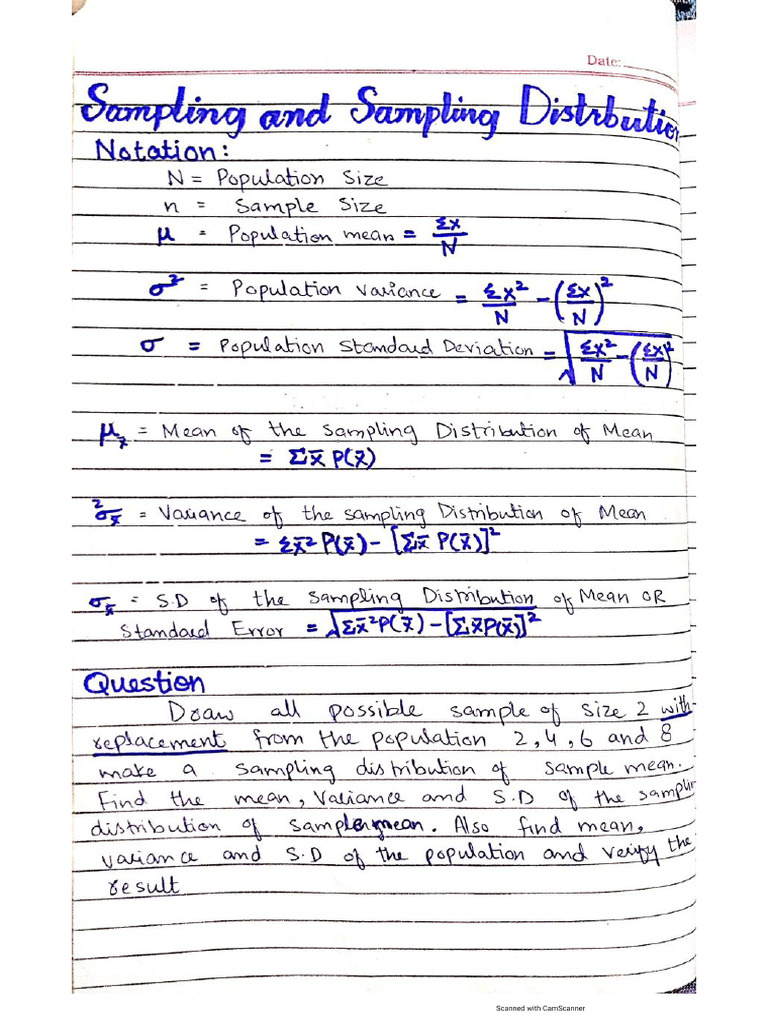 Date:
Sampling and Sampling Distrbution
Notation:
N = Population Size
n = Sample Size
μ = Population mean = Σx/N
σ² = Population variance = Σx²/N - (Σx/N)²
σ = Population Standard Deviation = √(Σx²/N - (Σx/N)²)
μx̄ = Mean of the Sampling Distribution of Mean
= Σx̄ P(x̄)
²σx̄ = Variance of the sampling Distribution of Mean
= Σx̄² P(x̄) - [Σx̄ P(x̄)]²
σx̄ = S.D of the Sampling Distribution of Mean OR
Standard Error = √(Σx̄²P(x̄) - [Σx̄P(x̄)]²)
Question
Draw all possible sample of size 2 with
replacement from the population 2, 4, 6 and 8
make a sampling distribution of sample mean.
Find the mean, Variance and S.D of the samplin
distribution of mean. Also find mean,
variance and S.D of the population and verify the
result
Scanned with CamScanner